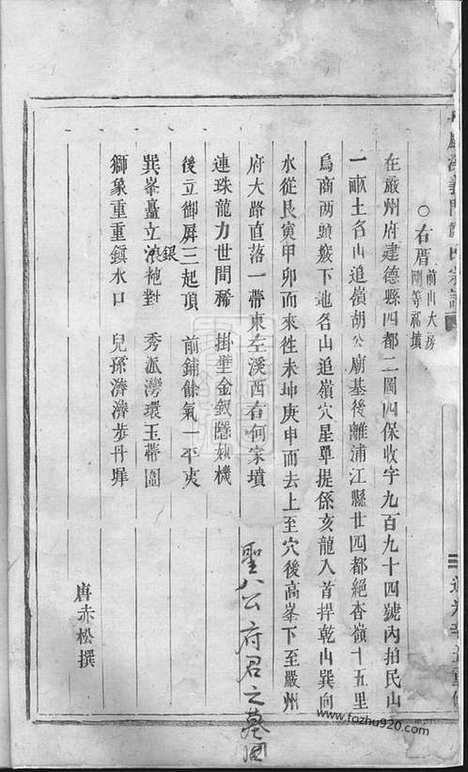 ○右厝前山大房剛等福墳
在嚴州府建德縣四都二圖四保收字九百九十四號內拍民山
一畝土名山追嶺胡公廟基後離浦江縣廿四都絕杳嶺十五里
烏商兩頭竅下地名山追嶺穴星單提係亥龍入首捍乾山巽向
水從艮寅甲卯而來徃未坤庚申而去上至穴後高峯下至嚴州
府大路直落一帶東左溪西右何家墳
連珠龍力世間稀　掛壁金釵隱玅機
後立御屏三起頂　前鋪餘氣一平夷
巽峯臺立銀袍對　秀派灣環玉帶圍
獅象重重鎮水口　兒孫濟濟步丹墀
唐赤松撰
聖八公府君之墓圖
www.fozhu920.com